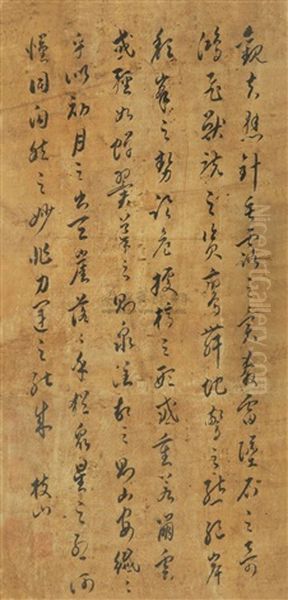 觀夫懸針垂露之異奔雷墜石之奇
鴻飛獸駭之資鸞舞蛇驚之態絕岸
頹峯之勢臨危據槁之形或重若崩雲
或輕如蟬翼導之則泉注頓之則山安纖々
乎似初月之出天崖落々乎猶眾星之列河
漢同自然之妙非力運之能成 枝山
NiceArtGallery.com